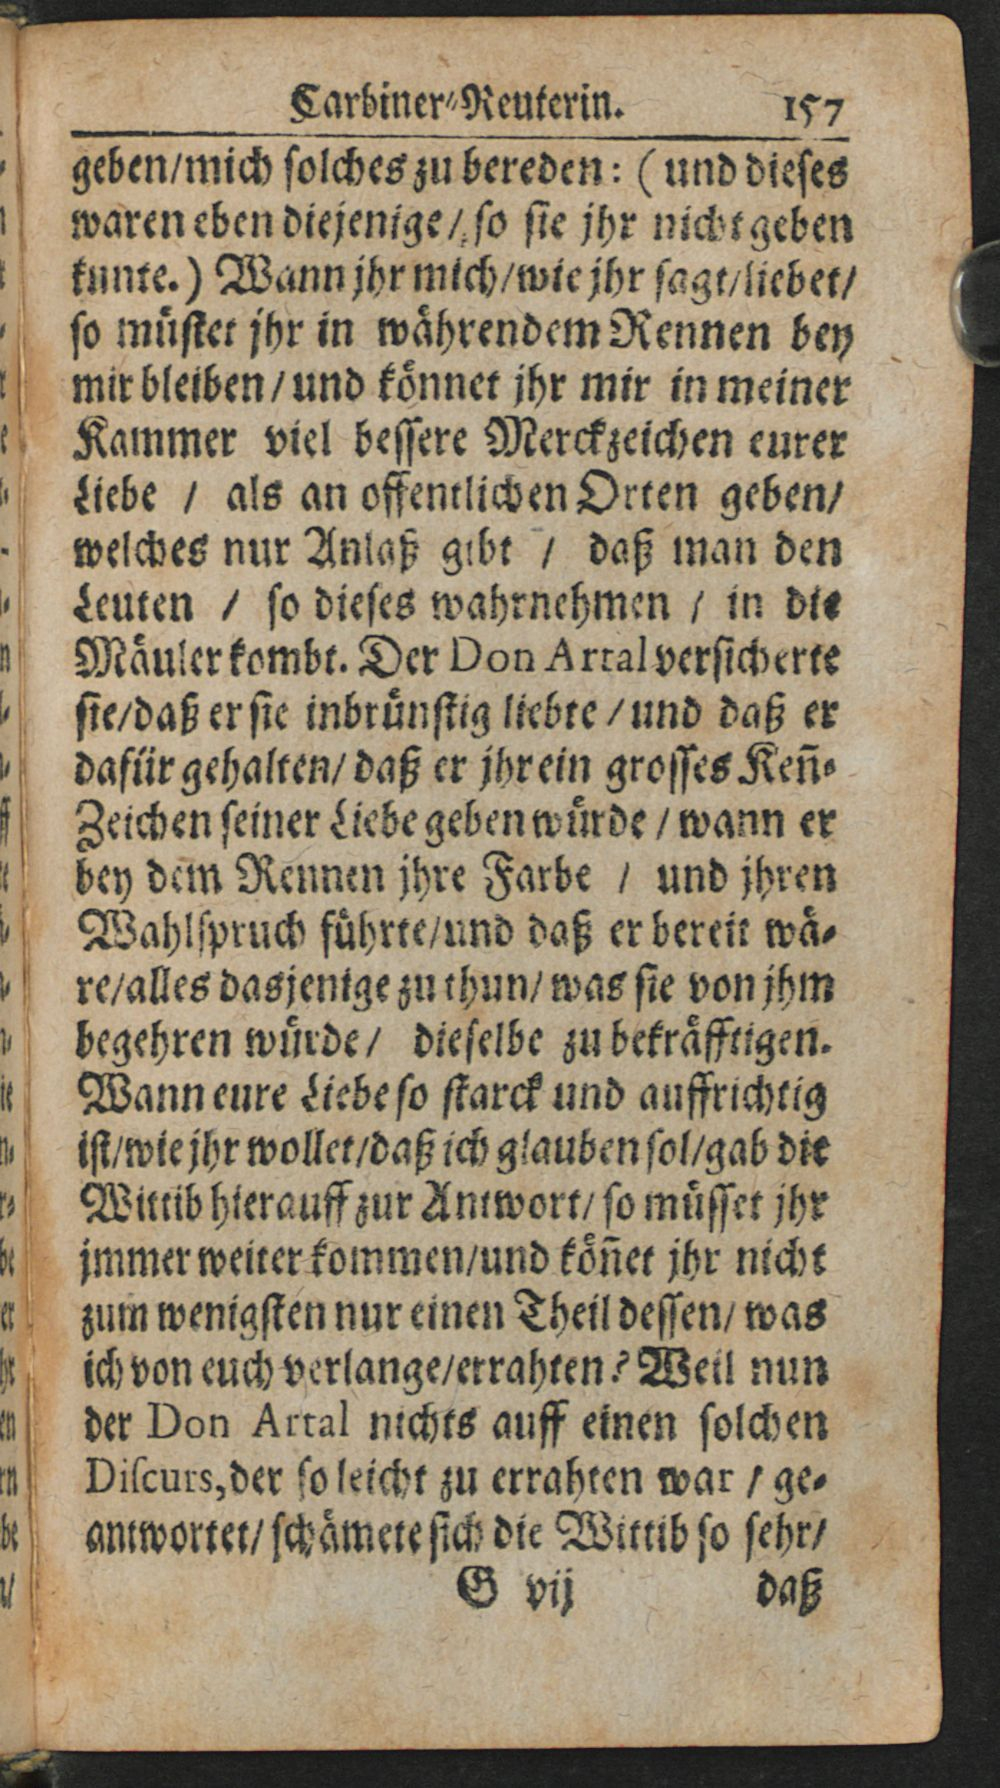 Carbiner-Reuterin. 157
geben/mich solches zu bereden: (und dieses
waren eben diejenige/ so sie jhr nicht geben
kunte.) Wann jhr mich/wie jhr sagt/liebet/
so müstet jhr in währendem Rennen bey
mir bleiben/und könnet jhr mir in meiner
Kammer viel bessere Merckzeichen eurer
Liebe / als an offentlichen Orten geben/
welches nur Anlaß gibt / daß man den
Leuten / so dieses wahrnehmen / in die
Mäuler kombt. Der Don Artal versicherte
sie/daß er sie inbrünstig liebte/und daß er
dafür gehalten/daß er jhr ein grosses Keñ-
Zeichen seiner Liebe geben würde/wann er
bey dem Rennen jhre Farbe / und jhren
Wahlspruch führte/und daß er bereit wä-
re/alles dasjenige zu thun/was sie von jhm
begehren würde/ dieselbe zu bekräfftigen.
Wann eure Liebe so starck und auffrichtig
ist/wie jhr wollet/daß ich glauben sol/gab die
Wittib hierauff zur Antwort/so müsset jhr
jmmer weiter kommen/und köñet jhr nicht
zum wenigsten nur einen Theil dessen/was
ich von euch verlange/errahten? Weil nun
der Don Artal nichts auff einen solchen
Discurs,der so leicht zu errahten war / ge-
antwortet/schämete sich die Wittib so sehr/
G vij daß